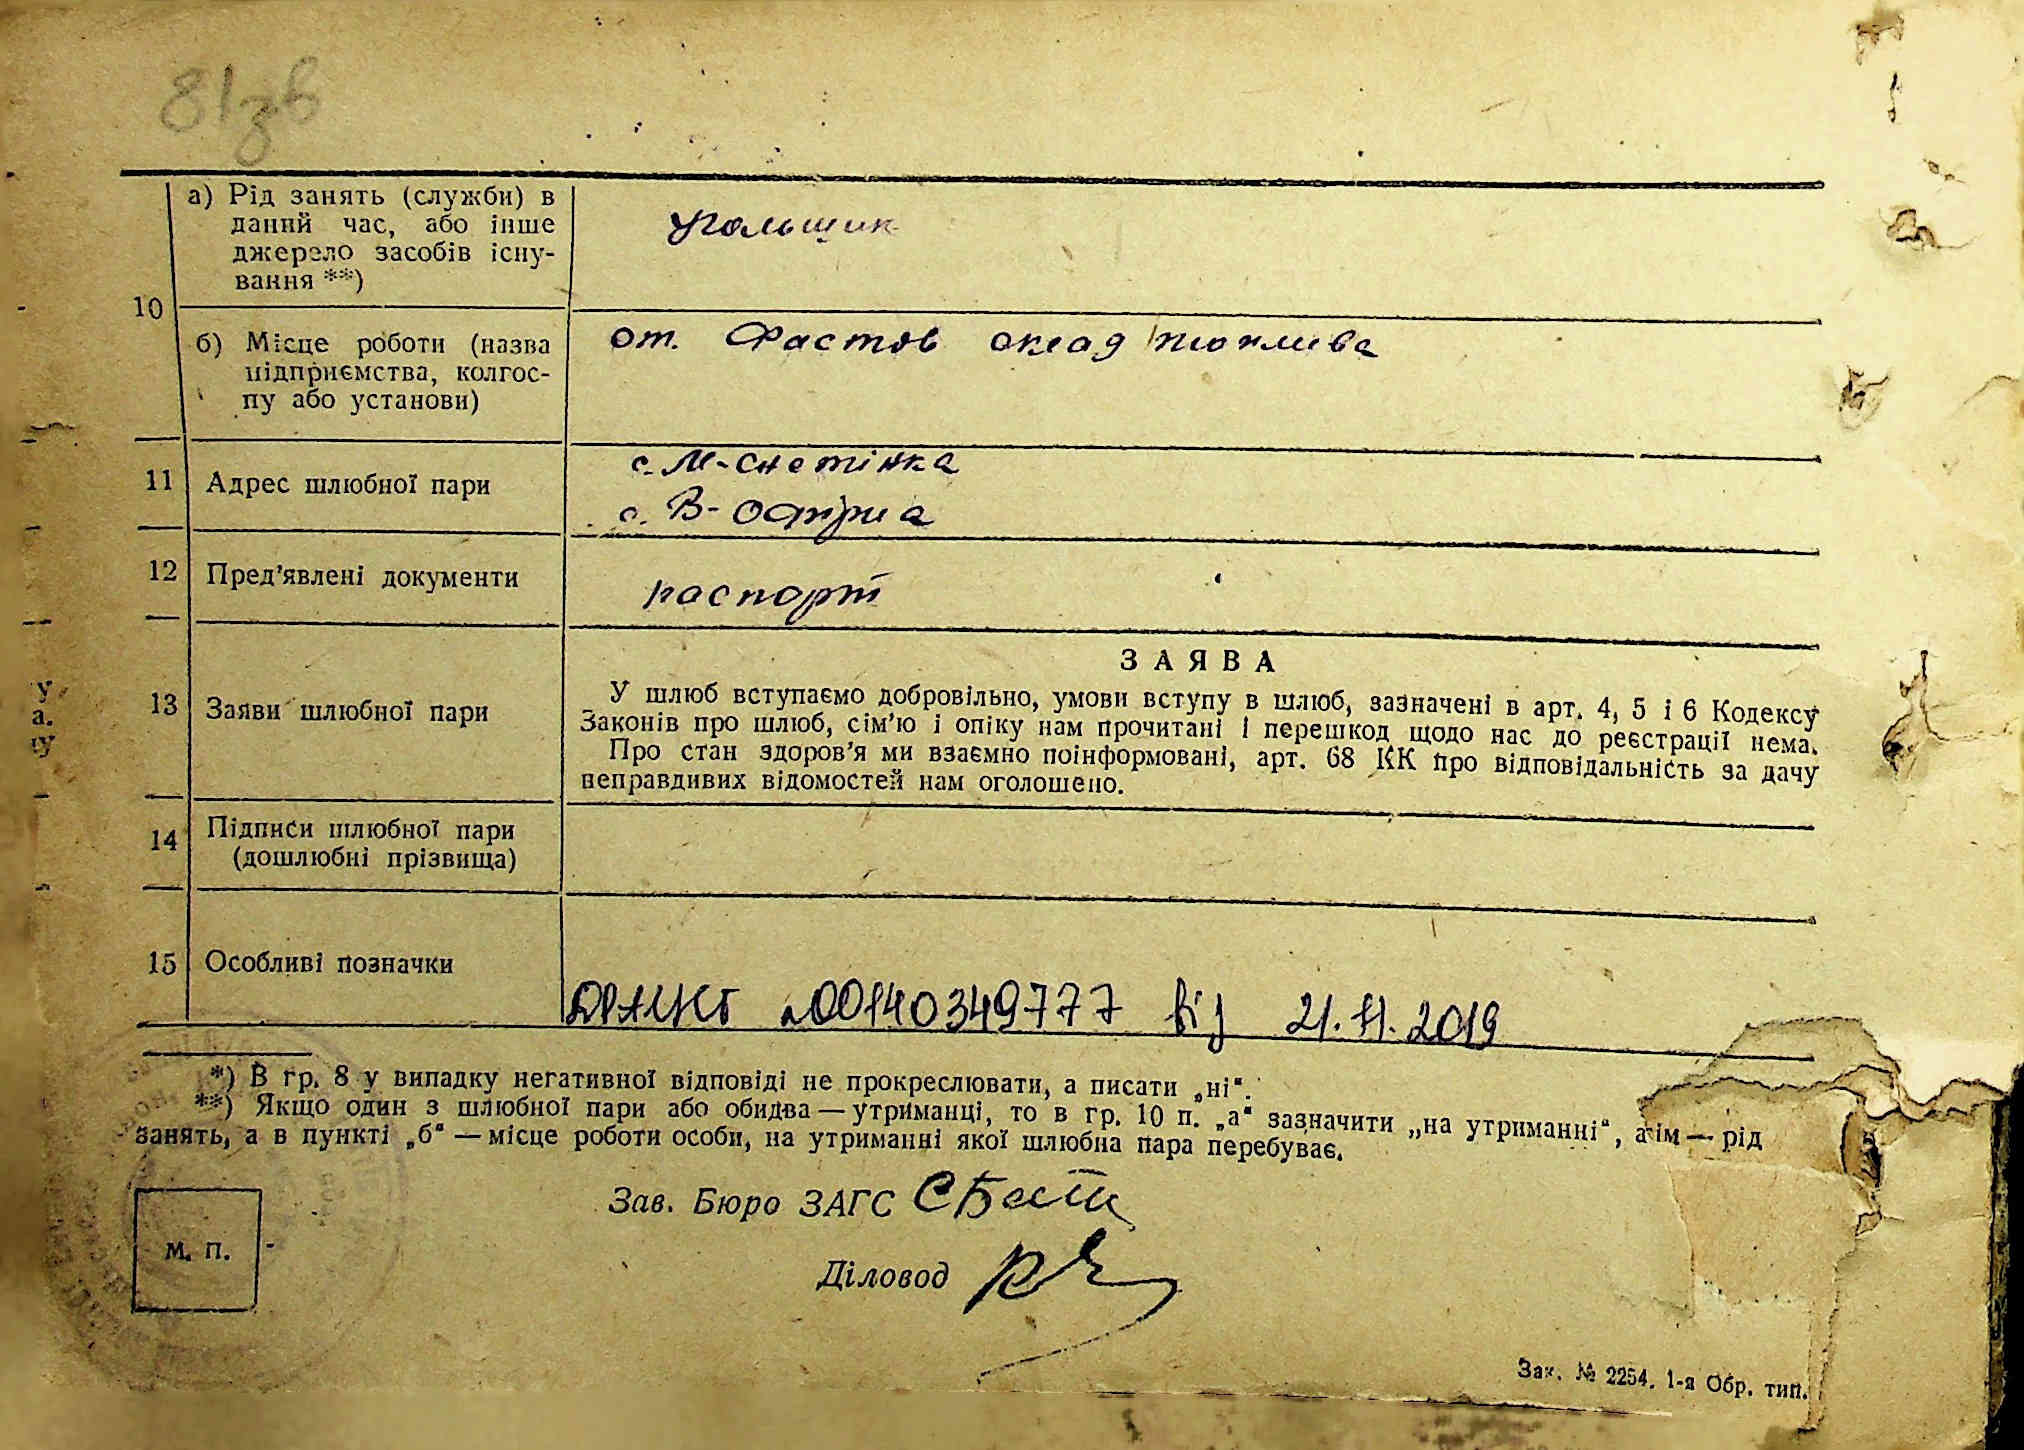 81зв
а) Рід занять (служби) в
даний час, або інше
джерело засобів існу-
вання **)
угольщик
10
б) Місце роботи (назва
підприємства, колгос-
пу або установи)
ст. Фастов склад топлива
11
Адрес шлюбної пари
с. М-Снетінка
с. В-Офірна
12
Пред'явлені документи
паспорт
13
Заяви шлюбної пари
ЗАЯВА
У шлюб вступаємо добровільно, умови вступу в шлюб, зазначені в арт. 4, 5 і 6 Кодексу
Законів про шлюб, сім'ю і опіку нам прочитані і перешкод щодо нас до реєстрації нема.
Про стан здоров'я ми взаємно поінформовані, арт. 68 КК про відповідальність за дачу
неправдивих відомостей нам оголошено.
14
Підписи шлюбної пари
(дошлюбні прізвища)
15
Особливі позначки
ДРАЦСГ 00140349777 від 21.11.2019
*) В гр. 8 у випадку негативної відповіді не прокреслювати, а писати „ні“.
**) Якщо один з шлюбної пари або обидва — утриманці, то в гр. 10 п. „а“ зазначити „на утриманні“, а їм — рід
занять, а в пункті „б“ — місце роботи особи, на утриманні якої шлюбна пара перебуває.
Зав. Бюро ЗАГС
Діловод
М. П.
Зак. № 2254. 1-я Обр. тип.